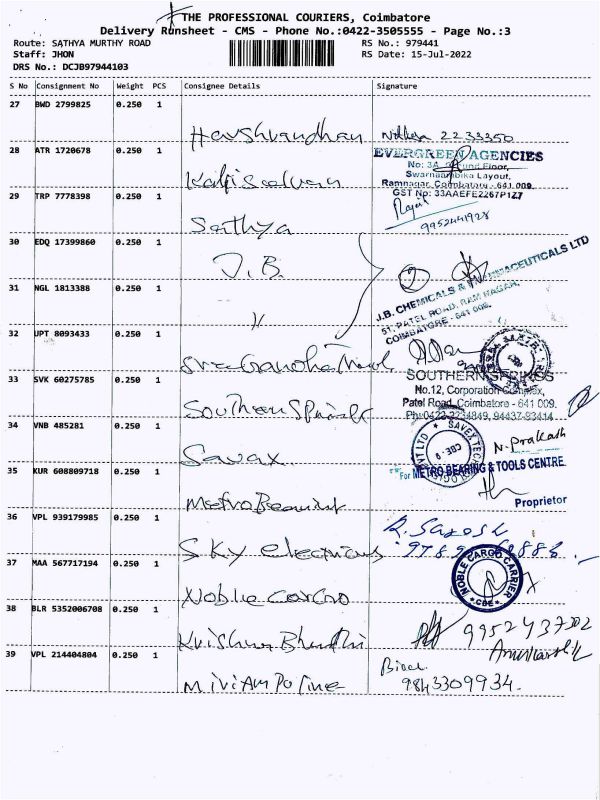 THE PROFESSIONAL COURIERS, Coimbatore
Delivery Runsheet - CMS - Phone No.:0422-3505555 - Page No.:3
Route: SATHYA MURTHY ROAD RS No.: 979441
Staff: JHON RS Date: 15-Jul-2022
DRS No.: DCJB97944103
S No Consignment No Weight PCS Consignee Details Signature
27 BWD 2799825 0.250 1
Harshvardhan 2233350
28 ATR 1720678 0.250 1
EVERGREEN AGENCIES
No: 3A, Ground Floor,
Swarnaambika Layout,
Ramnagar, Coimbatore - 641 009.
GST No: 33AAEFE2267P1Z7
Kalpiselvan
29 TRP 7778398 0.250 1
9952441928
Sathya
30 EDQ 17399860 0.250 1
J.B.
31 NGL 1813388 0.250 1
J.B. CHEMICALS & PHARMACEUTICALS LTD
51, PATEL ROAD, RAM NAGAR,
COIMBATORE - 641 009.
〃
32 UPT 8093433 0.250 1
33 SVK 60275785 0.250 1
SOUTHERN SPRINGS
No.12, Corporation Complex,
Patel Road, Coimbatore - 641 009.
Southern Springs
34 VNB 485281 0.250 1
SAVEX
N. Prakash
Savax
35 KUR 608809718 0.250 1
For METRO BEARING & TOOLS CENTRE
Proprietor
Metro Bearing
36 VPL 939179985 0.250 1
Sky electricals
37 MAA 567717194 0.250 1
NOBLE CARGO CARRIER
CBE
Noble cargo
38 BLR 5352006708 0.250 1
Krishna Bharathi
39 VPL 214404804 0.250 1
9843309934.